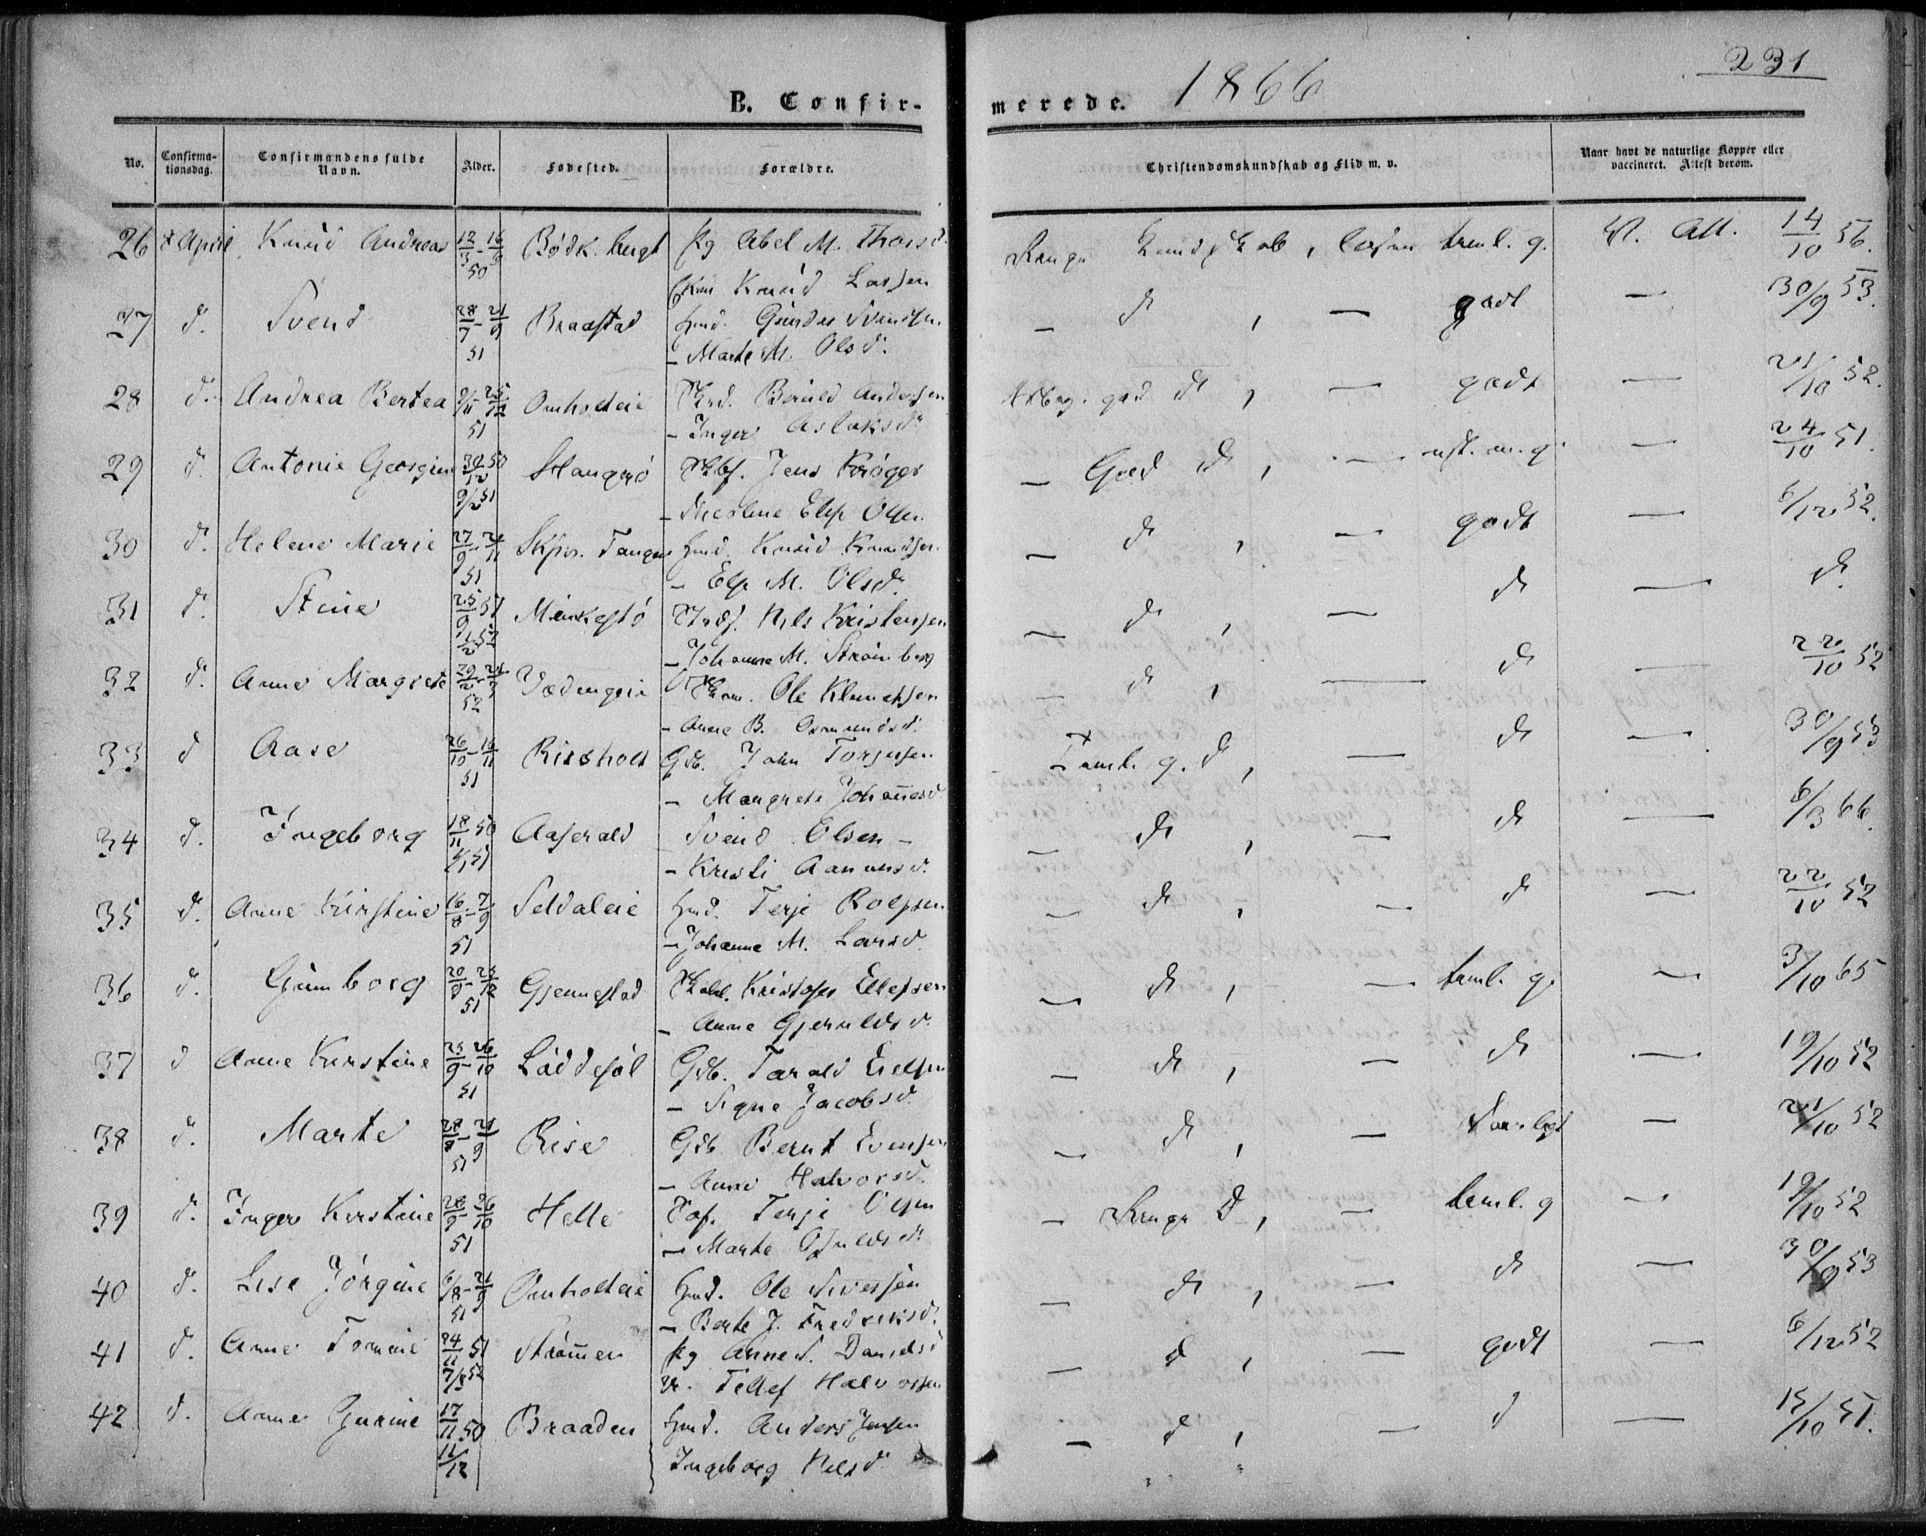 231
B. Confir-
merede. 1866
No.
Confirma-
tionsdag.
Confirmandens fulde
Navn.
Alder.
Fødested.
Forældre.
Christendomskundskab og Flid m. v.
Naar havt de naturlige Kopper eller
vaccineret. Attest derom.
26 8 April Knud Andreas 12/3 - 16/9 50 Bødk. pg Abel M.
Knud Larsen
kundskab, læsn teml. g. Att. 14/10 56.
27 d. Svend 28/7 - 21/9 51 Braastad hmd. Gunder Svendsen
— Marte M. Olsd.
— d , — godt — 30/9 53.
28 d. Andrea Bertea 9/11 - 25/12 51 Omholteie Bernt Andersen
— Inger Aslaksd.
d , — godt — 21/10 52.
29 d. Antonie Georgine 30/12 50 9/2 51 Stangerø Jens Krøger
— Nicoline Else Olsen
— God d , — — 24/10 51.
30 d. Helene Marie 27/9 - 2/11 51 Tangen hmd. Knud Knudsen
— Else M. Olsd.
— d , — godt — 6/12 52.
31 d. Stine 25/9 51 1/2 52 Minkestø Nils Kristensen
— Johanne M. Strømberg
— d , — d — d.
32 d. Anne Margrete 29/2 - 21/9 52 Vædengeie Ole Klemetsen
— Anne B. Osmundsd.
— d , — d — 22/10 52
33 d Aase 26/10 - 16/11 51 Risholt Gdb. John Torjusen
— Margrete Johannesd.
Teml. g. d , — d — 30/9 53
34 d. Ingeborg 18/11 50 1/1 51 Aaserald Svend Olsen —
— Kristi Aanonsd.
— d , — d — 6/3 66.
35 d. Anne Kirstine 16/8 - 7/9 51 Seldaleie hmd. Terje Rolfsen
— Johanne M. Larsd.
— d , — d — 22/10 52
36 d. Gunborg 20/9 - 25/12 51 Gjennestad Kristofer Ellefsen
— Anne Gjeruldsd.
— d , — teml. g. — 3/10 65
37 d Anne Kirstine 25/9 - 26/10 51 Løddesøl Gdb. Tarald
— Signe Jacobsd.
— d , — d — 19/10 52
38 d. Marte 28/8 - 21/9 51 Rise Gdb Bernt Evensen
— Anne Halvorsd.
— d , — — 21/10 52
39 d. Inger Kirstine 28/9 - 26/10 51 Helle Terje Olsen
— Marte Gjeruldsd.
— d , — teml. g — 19/10 52
40 d. Lise Jørgine 6/8 - 21/9 51 Omholteie hmd. Ole Siversen
— Berte J. Fredriksd.
— d , — d — 30/9 53
41 d. Anne Tomine 24/11 51 7/3 52 Strømmen pg Anne S. Danielsd
Tellef Halvorsen
— d , — godt — 6/12 52
42 d. Anne Gurine 17/11 50 11/12 Braaden hmd. Anders Jensen
Ingeborg Nilsd
— d , — d — 15/10 51.